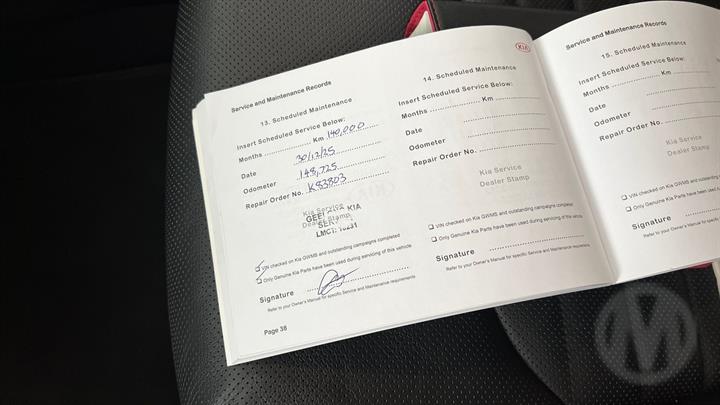 Service and Maintenance Records
13. Scheduled Maintenance
Insert Scheduled Service Below:
Months Km 140,000
Date 30/12/25
Odometer 148,725
Repair Order No. K83803
Kia Service
Dealer Stamp
KIA
LMCT:
VIN checked on Kia GWMS and outstanding campaigns completed
Only Genuine Kia Parts have been used during servicing of this vehicle
Signature
Refer to your Owner's Manual for specific Service and Maintenance requirements
Page 38
KIA
14. Scheduled Maintenance
Insert Scheduled Service Below:
Months Km
Date
Odometer
Repair Order No.
Kia Service
Dealer Stamp
VIN checked on Kia GWMS and outstanding campaigns complete
Only Genuine Kia Parts have been used during servicing of this vehicle
Signature
Refer to your Owner's Manual for specific Service and Maintenance requirements
Service and Maintenance Records
15. Scheduled Maintenance
Insert Scheduled Service Below:
Months Km
Date
Odometer
Repair Order No.
Kia Service
Dealer Stamp
VIN checked on Kia GWMS and outstanding
Only Genuine Kia Parts have been used
Signature
Refer to your Owner's Manual for specific
M